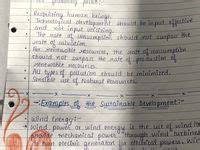 the following point:-
Respecting human beings.
Technological development should be input effective
and not input utilising.
The rate of consumption should not surpass the
rate of salvation.
For renewable resources, the rate of consumption
should not surpass the rate of production of
renewable resources.
All types of pollution should be minimized.
Sensible use of Natural Resources.
Examples of the Sustainable Development:-
Wind Energy:-
Wind power or wind energy is the use of wind to
provide mechanical power through wind turbines
to turn electric generators for electrical power. Wind